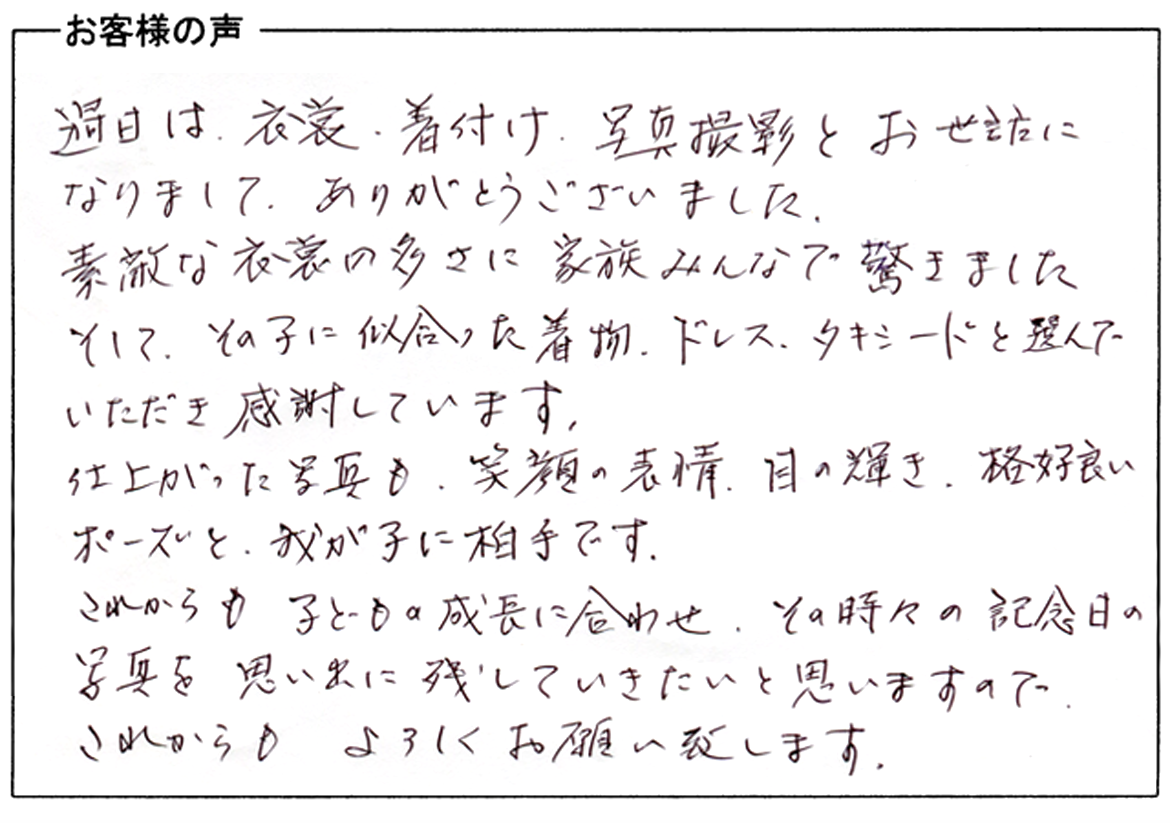 お客様の声
過日は、衣裳、着付け、写真撮影とお世話に
なりまして、ありがとうございました。
素敵な衣裳の多さに家族みんなで驚きました
そして、その子に似合った着物、ドレス、タキシードと選んで
いただき感謝しています。
仕上がった写真も、笑顔の表情、目の輝き、格好良い
ポーズと、我が子に相手です。
これからも 子どもの成長に合わせ、その時々の記念日の
写真を 思い出に残していきたいと思いますので、
これからも よろしくお願い致します。